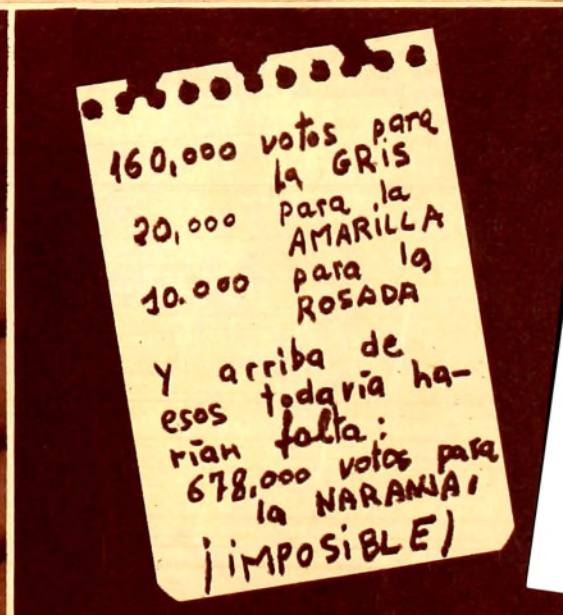 160,000 votos para
la GRIS
20,000 para la
AMARILLA
10.000 para la
ROSADA
Y arriba de
esos todavía ha-
rían falta:
678,000 votos para
la NARANJA,
¡IMPOSIBLE!